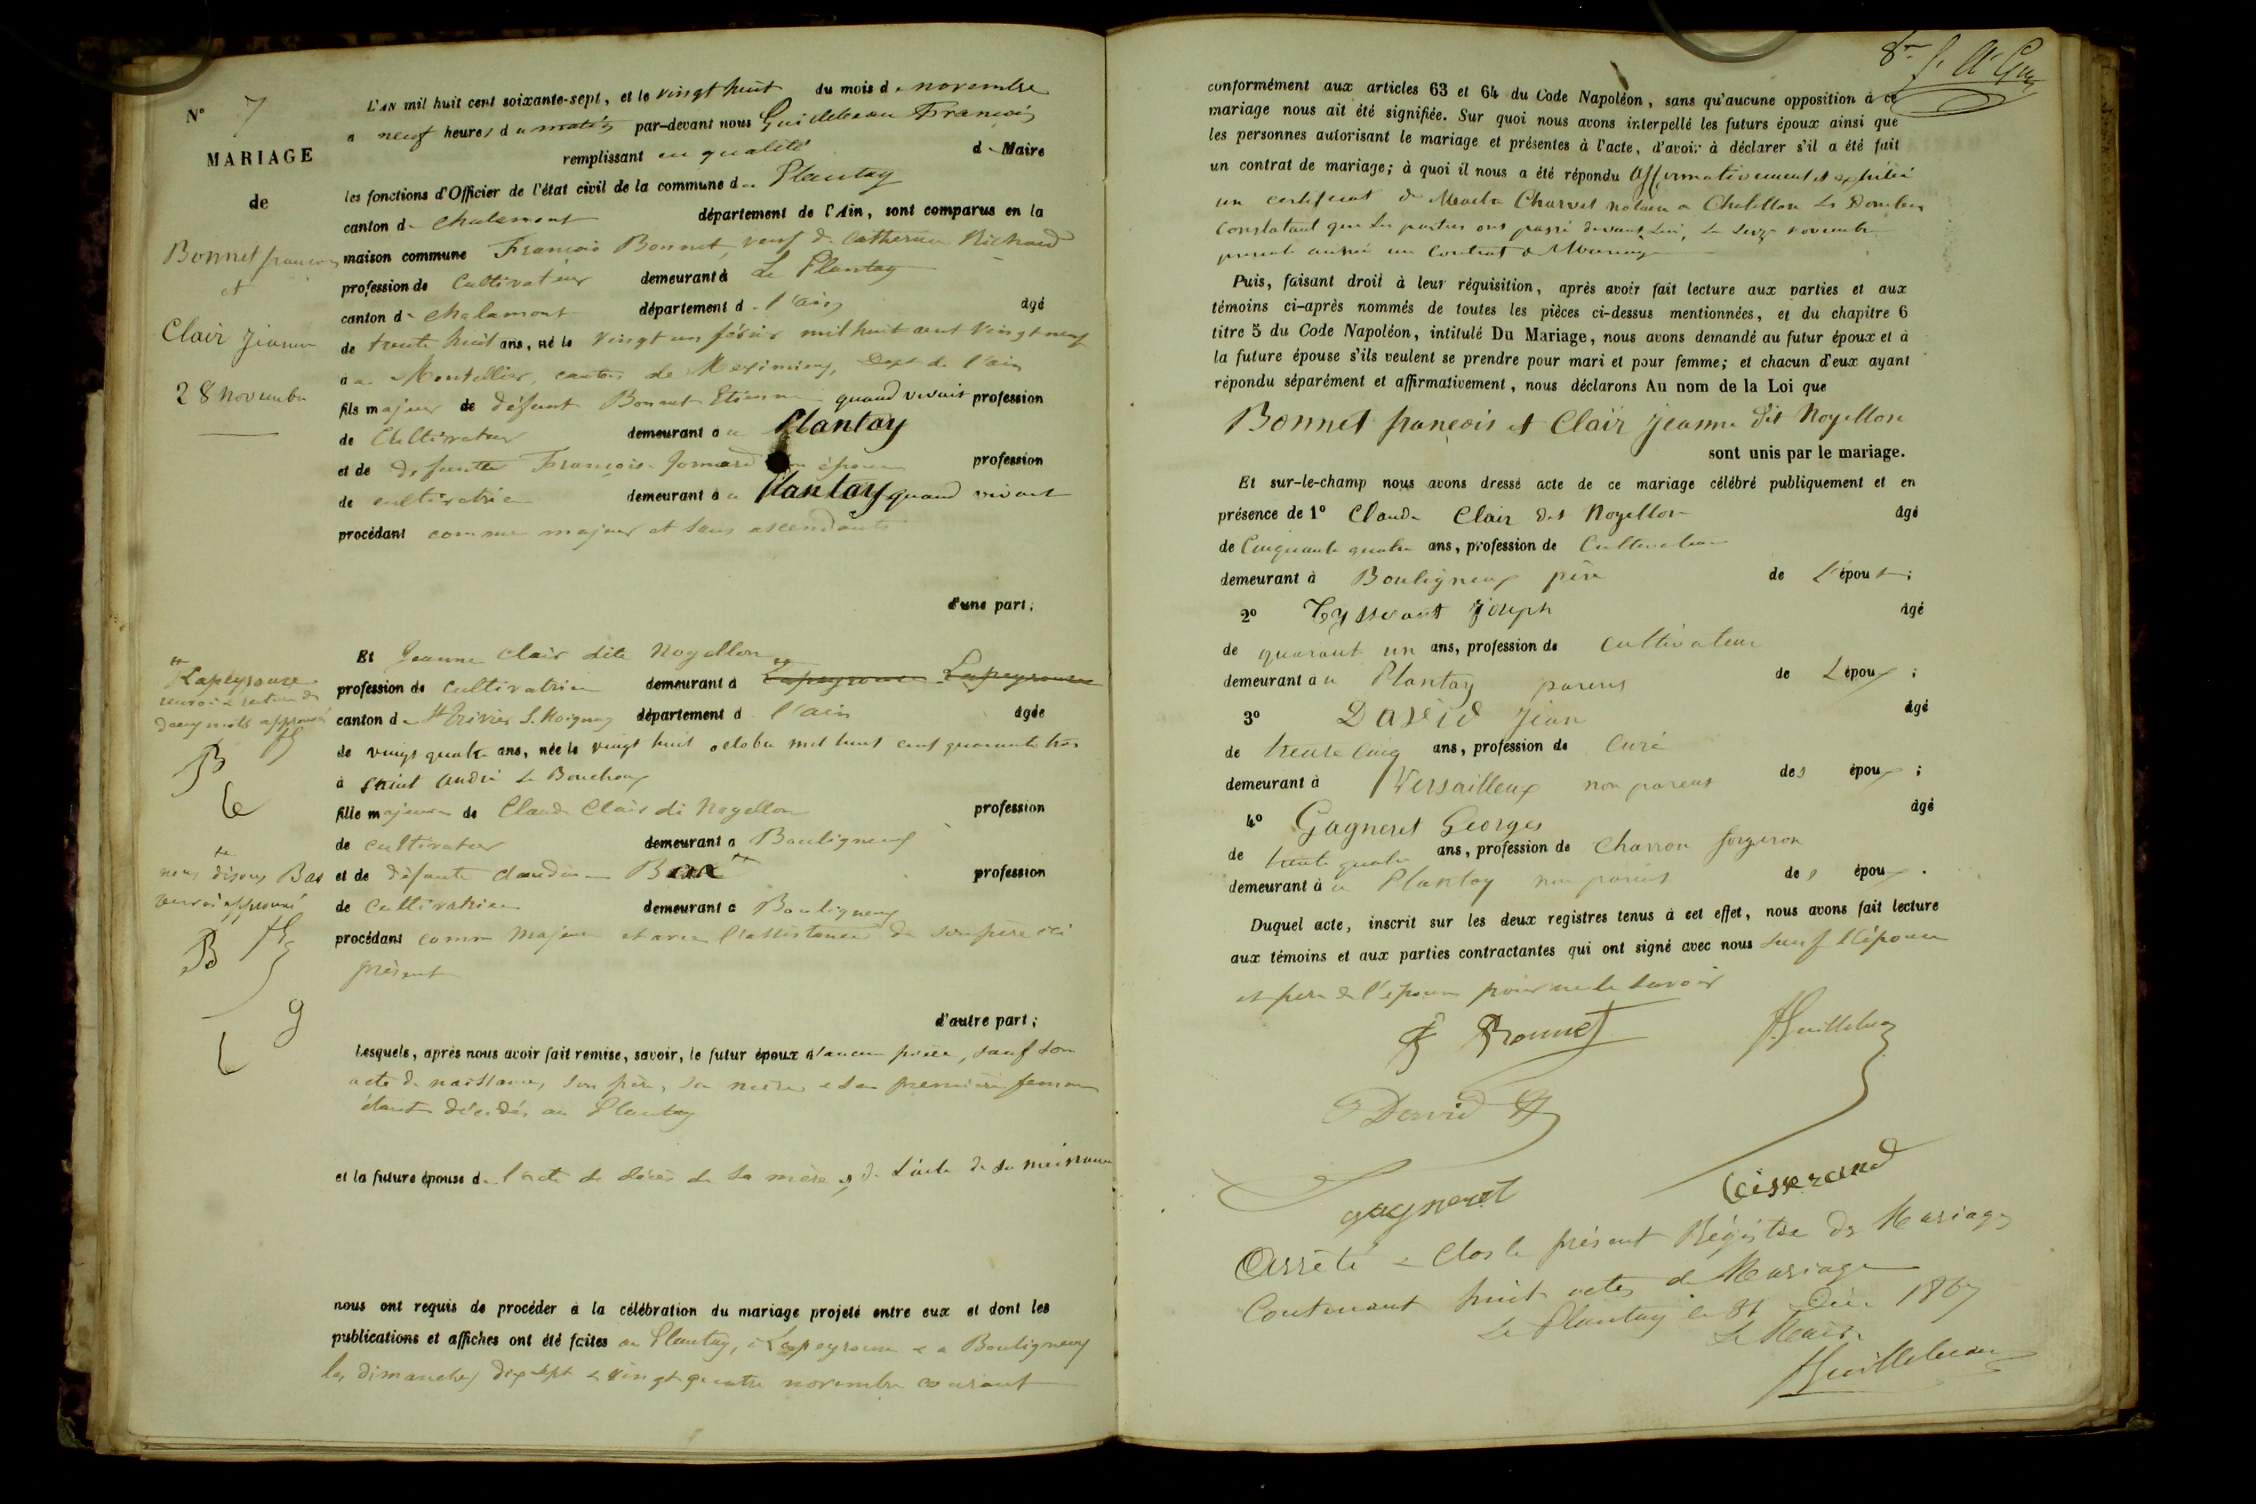 N° 7
MARIAGE
de
Bonnet francois
et
Clair Jeanne
28 Novembre
L'AN mil huit cent soixante-sept, et le vingt huit du mois de novembre
a neuf heures du matin par-devant nous Guillebeau François
remplissant en qualité de Maire
les fonctions d'Officier de l'état civil de la commune du Plantay
canton de chalamont département de l'Ain, sont comparus en la
maison commune François Bonnet, veuf de Catherine Richard
profession de Cultivateur demeurant à Le Plantay
canton de chalamont département de l'ain âgé
de trente huit ans, né le vingt un février mil huit cent vingt neuf
a au Montellier, canton de Meximieux, Dept de l'ain
fils majeur de défunt Bonnet Etienne quand vivait profession
de Cultivateur demeurant a au Plantay
et de défunte Françoise Jomard son épouse profession
de cultivatrice demeurant à au Plantay quand vivait
procédant comme majeur et sans ascendants
d'une part;
Et Jeanne Clair dite Noyellon
profession de cultivatrice demeurant à Lapeyrouse Lapeyrouse
canton de St Trivier S. Moignans département de l'ain âgée
de vingt quatre ans, née le vingt huit octobre mil huit cent quarante trois
à Saint André Le Bouchoux
fille majeure de Claude Clair dit Noyellon profession
de cultivateur demeurant a Bouligneux
et de défunte claudine profession
de Cultivatrice demeurant a Bouligneux
procédant comme Majeure et avec l'assistance de son père ici
présent
d'autre part;
Lapeyrouse
renvoi et rature de
deux mots approuvés
B
nous disons Bas
renvoi approuvé
B
Lesquels, après nous avoir fait remise, savoir, le futur époux d'aucune pièce, sauf son
acte de naissance, son père, sa mère et sa première femme
étant décédés au Plantay
et la future épouse de l'acte de décès de sa mère et de l'acte de sa naissance
nous ont requis de procéder à la célébration du mariage projeté entre eux et dont les
publications et affiches ont été faites au Plantay, à Lapeyrouse et a Bouligneux
les dimanches dix sept et vingt quatre novembre courant
conformément aux articles 63 et 64 du Code Napoléon, sans qu'aucune opposition à ce
mariage nous ait été signifiée. Sur quoi nous avons interpellé les futurs époux ainsi que
les personnes autorisant le mariage et présentes à l'acte, d'avoir à déclarer s'il a été fait
un contrat de mariage; à quoi il nous a été répondu affirmativement et exhibé
un certificat de Maitre Charvet notaire a Chatillon Les Dombes
Constatant que les parties ont passé devant Lui, le seize novembre
présente année un Contrat de Mariage
Puis, faisant droit à leur réquisition, après avoir fait lecture aux parties et aux
témoins ci-après nommés de toutes les pièces ci-dessus mentionnées, et du chapitre 6
titre 5 du Code Napoléon, intitulé Du Mariage, nous avons demandé au futur époux et à
la future épouse s'ils veulent se prendre pour mari et pour femme; et chacun d'eux ayant
répondu séparément et affirmativement, nous déclarons Au nom de la Loi que
Bonnet francois et Clair Jeanne dit Noyellon
sont unis par le mariage.
Et sur-le-champ nous avons dressé acte de ce mariage célébré publiquement et en
présence de 1° Claude Clair dit Noyellon âgé
de Cinquante quatre ans, profession de Cultivateur
demeurant à Bouligneux père de L'épouse;
2° Tysserant Joseph âgé
de quarant un ans, profession de cultivateur
demeurant a au Plantay parens de L époux;
3° David Jean âgé
de trente cinq ans, profession de Curé
demeurant à Versailleux non parens des époux;
4° Gagneret Georges âgé
de trente quatre ans, profession de Charron forgeron
demeurant à au Plantay non parens des époux.
Duquel acte, inscrit sur les deux registres tenus à cet effet, nous avons fait lecture
aux témoins et aux parties contractantes qui ont signé avec nous sauf l'épouse
et pere de l'épouse pour ne le savoir
F Bonnet
Guillebeau
J David
gagneret
Tisserand
Arrêté et Clos le présent Régistre de Mariages
Contenant huit actes de Mariage
Le Plantay le 31 Déc. 1867
Le Maire
Guillebeau